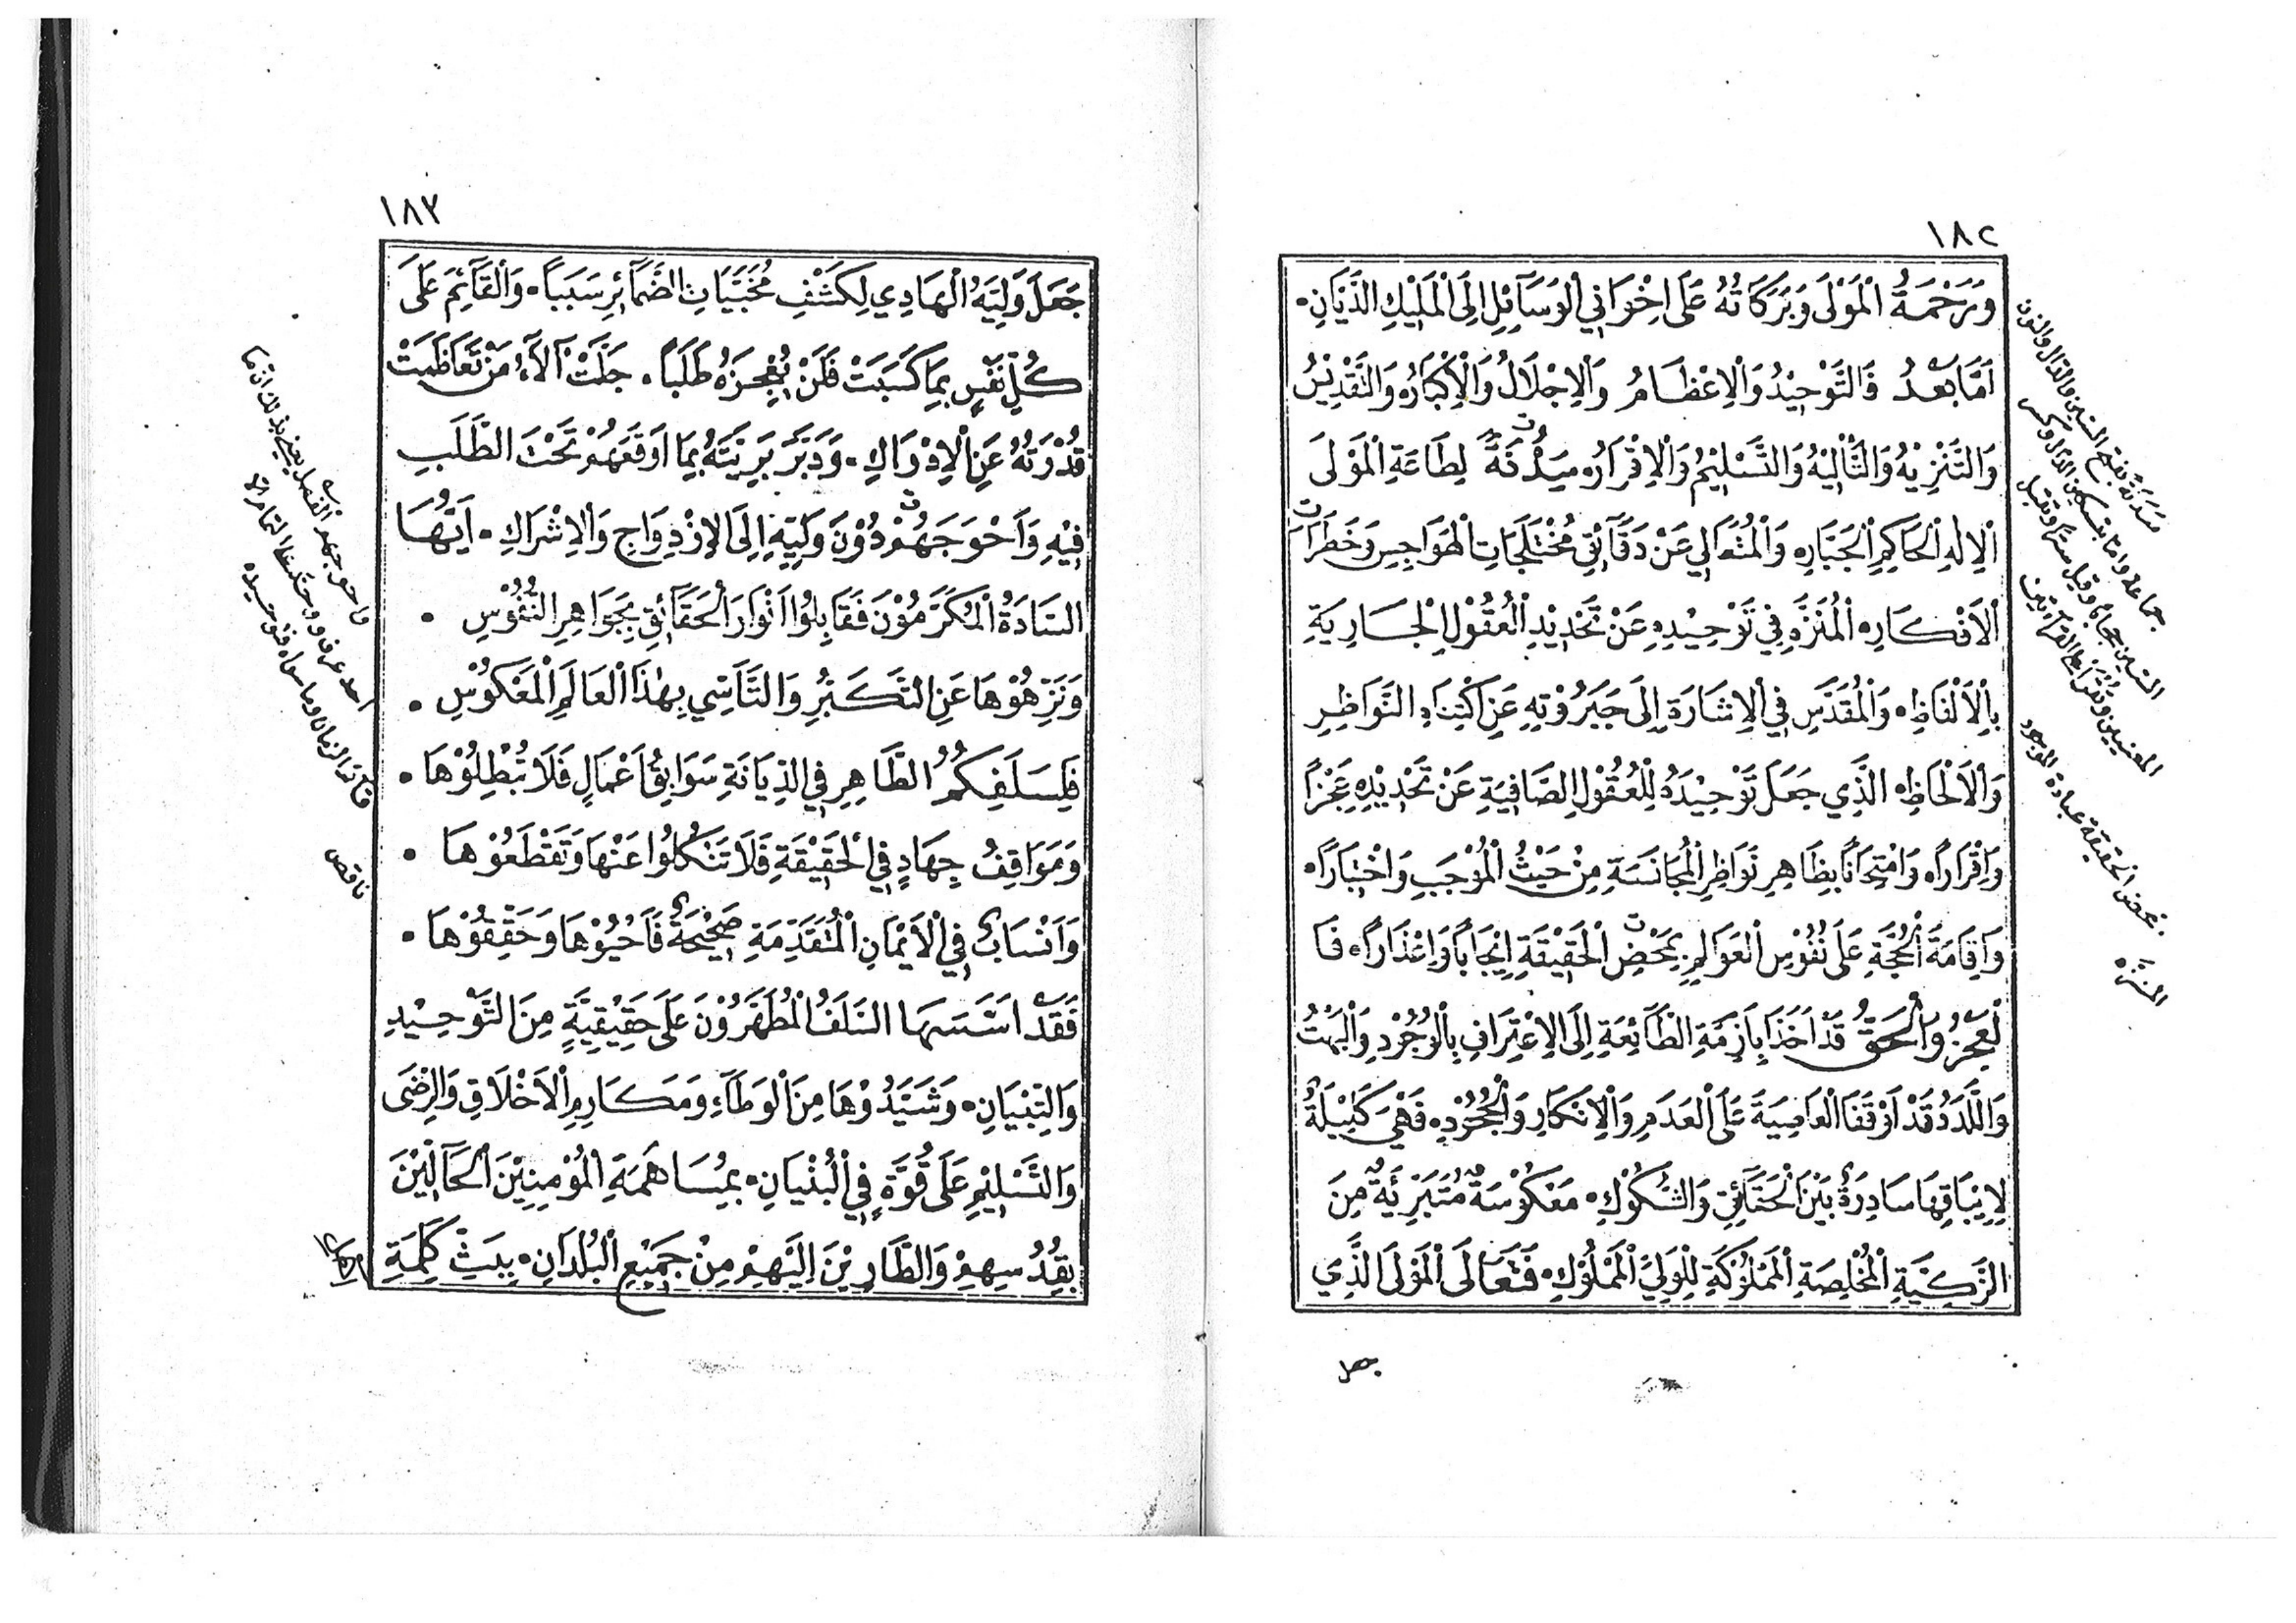 ١٨٢
وَرَحْمَةُ الْمَوْلَى وَبَرَكَاتُهُ عَلَى اِخْوَانِي الْوَسَآئِلِ اِلَى الْمَلِيْكِ الدَّيَّانِ.
اَمَّا بَعْدُ فَالتَّوْحِيْدُ وَالْاِعْظَامُ وَالْاِجْلَالُ وَالْاِكْبَارُ، وَالتَّقْدِيْسُ
وَالتَّنْزِيْهُ وَالتَّأْلِيْهُ وَالتَّسْلِيْمُ وَالْاِقْرَارُ، سَدَنَةٌ لِطَاعَةِ الْمَوْلَى
الْاِلهِ الْحَاكِمِ الْجَبَّارِ، وَالْمُتَعَالِي عَنْ دَقَآئِقِ مُخْتَلَجَاتِ الْهَوَاجِسِ وَخَطَرَاتِ
الْاَفْكَارِ، الْمُنَزَّهِ فِي تَوْحِيْدِهِ عَنْ تَحْدِيْدِ الْعُقُوْلِ الْجَارِيَةِ
بِالْاَلْفَاظِ، وَالْمُقَدَّسِ فِي الْاِشَارَةِ اِلَى جَبَرُوْتِهِ عَنِ اكْتِنَاهِ النَّوَاظِرِ
وَالْاَلْحَاظِ، الَّذِي جَعَلَ تَوْحِيْدَهُ لِلْعُقُوْلِ الصَّافِيَةِ عَنْ تَحْدِيْدِهِ عَجْزًا
وَاِقْرَارًا، وَامْتِحَانًا بِظَاهِرِ نَوَاظِرِ الْمُجَانَسَةِ مِنْ حَيْثُ الْمُوْجَبِ وَاخْتِبَارًا،
وَاِقَامَةَ الْحُجَّةِ عَلَى نُفُوْسِ الْعَوَالِمِ بِمَحْضِ الْحَقِيْقَةِ اِيْجَابًا وَاِعْذَارًا، فَا
لْعَجْزُ وَالْحَقُّ قَدْ اَخَذَا بِاَزِمَّةِ الطَّآئِعَةِ اِلَى الْاِعْتِرَافِ بِالْوُجُوْدِ وَالْبَهْتُ
وَاللَّدَدُ قَدْ اَوْقَفَا الْعَاصِيَةَ عَلَى الْعَدَمِ وَالْاِنْكَارِ وَالْجُحُوْدِ، فَهْيَ كَلِيْلَةٌ
لِاِيْبَاقِهَا سَادِرَةٌ بَيْنَ الْحَقَآئِقِ وَالشُّكُوْكِ، مَعْكُوْسَةٌ مُتَبَرِّئَةٌ مِنَ
الزَّكِيَّةِ الْمُخْلِصَةِ الْمَمْلُوْكَةِ لِلْوَلِيِّ الْمَمْلُوْكِ، فَتَعَالَى الْمَوْلَى الَّذِي
جعل
سدنة بفتح السين والدال والنون
بمحض الحقيقة عبادة الموجود
المنزه
١٨٣
جَعَلَ وَلِيَّهُ الْهَادِي لِكَشْفِ مُخَبَّيَاتِ الضَّمَآئِرِ سَبَبًا. وَالْقَآئِمَ عَلَى
كُلِّ نَفْسٍ بِمَا كَسَبَتْ فَلَنْ يُعْجِزَهُ طَلَبًا. جَلَّتْ آلَآءُ مَنْ تَعَاظَمَتْ
قُدْرَتُهُ عَنِ الْاِدْرَاكِ. وَدَبَّرَ بَرِيَّتَهُ بِمَا اَوْقَعَهُمْ تَحْتَ الطَّلَبِ
فِيْهِ وَاَحْوَجَهُمْ دُوْنَ وَلِيِّهِ اِلَى الْاِزْدِوَاجِ وَالْاِشْرَاكِ. اَيُّهَا
السَّادَةُ الْمُكَرَّمُوْنَ فَقَابِلُوْا اَنْوَارَ الْحَقَآئِقِ بِجَوَاهِرِ النُّفُوْسِ.
وَنَزِّهُوْهَا عَنِ التَّكَبُّرِ وَالتَّأَسِّي بِهٰذَا الْعَالَمِ الْمَعْكُوْسِ.
فَلِسَلَفِكُمُ الطَّاهِرِ فِي الدِّيَانَةِ سَوَابِقُ اَعْمَالٍ فَلَا تُبْطِلُوْهَا.
وَمَوَاقِفُ جِهَادٍ فِي الْحَقِيْقَةِ فَلَا تَنْكُلُوْا عَنْهَا وَتَقْطَعُوْهَا.
وَاَنْسَابٌ فِي الْاَيْمَانِ الْمُتَقَدِّمَةِ صَحِيْحَةٌ فَاَحْيُوْهَا وَحَقِّقُوْهَا.
فَقَدْ اَسَّسَهَا السَّلَفُ الْمُطَهَّرُوْنَ عَلَى حَقِيْقِيَّةٍ مِنَ التَّوْحِيْدِ
وَالتِّبْيَانِ. وَشَيَّدُوْهَا مِنَ الْوَطَآءِ وَمَكَارِمِ الْاَخْلَاقِ وَالرِّضَى
وَالتَّسْلِيْمِ عَلَى قُوَّةٍ فِي الْبُنْيَانِ. بِمُسَاهَمَةِ الْمُؤْمِنِيْنَ الْحَآلِّيْنَ
بِقُدُسِهِمْ وَالطَّارِيْنَ اِلَيْهِمْ مِنْ جَمِيْعِ الْبُلْدَانِ. بِبَثِّ كَلِمَةِ
ناقص